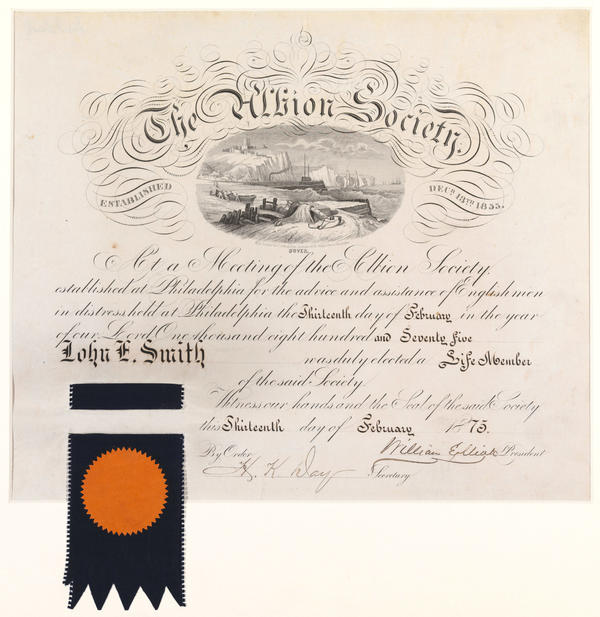 The Albion Society.
ESTABLISHED DECR. 18TH 1855.
DOVER.
At a Meeting of the Albion Society,
established at Philadelphia for the advice and assistance of Englishmen
in distress held at Philadelphia the Thirteenth day of February in the year
of our Lord One thousand eight hundred and Seventy five
John E. Smith was duly elected a Life Member
of the said Society.
Witness our hands and the Seal of the said Society
this Thirteenth day of February 1875.
By Order William Elliott President
K. Day Secretary